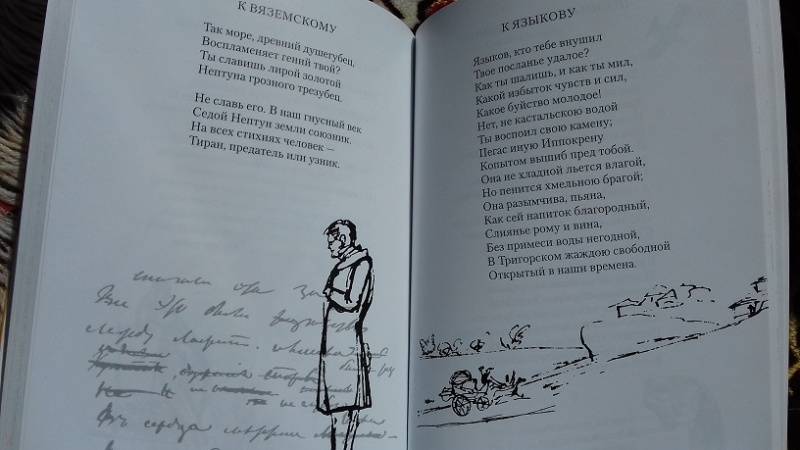 К ВЯЗЕМСКОМУ
Так море, древний душегубец,
Воспламеняет гений твой?
Ты славишь лирой золотой
Нептуна грозного трезубец.
Не славь его. В наш гнусный век
Седой Нептун земли союзник.
На всех стихиях человек –
Тиран, предатель или узник.
К ЯЗЫКОВУ
Языков, кто тебе внушил
Твое посланье удалое?
Как ты шалишь, и как ты мил,
Какой избыток чувств и сил,
Какое буйство молодое!
Нет, не кастальскою водой
Ты воспоил свою камену;
Пегас иную Иппокрену
Копытом вышиб пред тобой.
Она не хладной льется влагой,
Но пенится хмельною брагой;
Она разымчива, пьяна,
Как сей напиток благородный,
Слиянье рому и вина,
Без примеси воды негодной,
В Тригорском жаждою свободной
Открытый в наши времена.